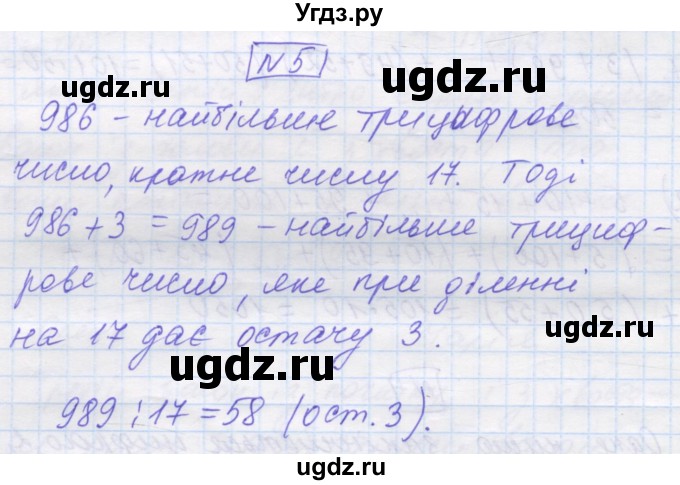 Угдз.ру
№5
ugdz.ru ugdz.ru
986 – найбільше трицифрове
число, кратне числу 17. Тоді
ugdz.ru
986 + 3 = 989 – найбільше трициф-
рове число, яке при діленні
ugdz.ru
на 17 дає остачу 3.
ugdz.ru
989 : 17 = 58 (ост. 3).
ugdz.ru